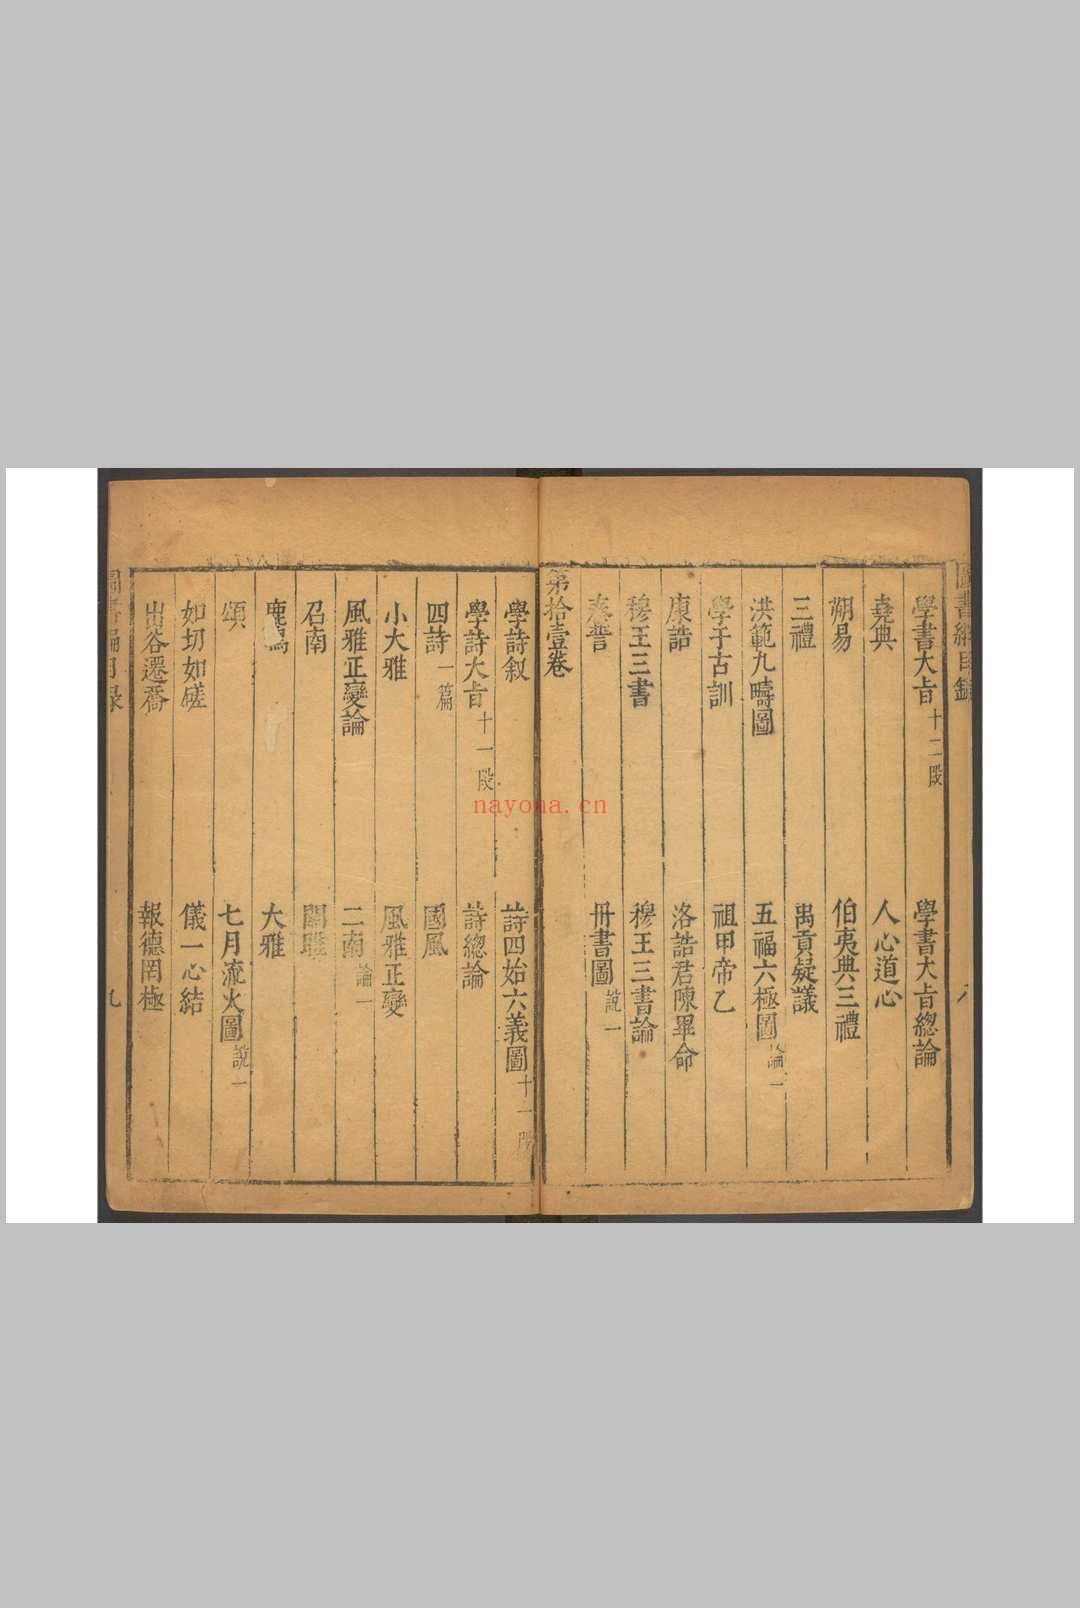 學書大旨十二段 學書大旨總論
堯典 人心道心
朔易 伯夷典三禮
三禮 禹貢疑議
洪範九疇圖 五福六極圖 論一
學于古訓 祖甲帝乙
康誥 洛誥君陳畢命
穆王三書 穆王三書論
秦誓 冊書圖說一
第拾壹卷
學詩叙 詩四始六義圖十一段
學詩大旨十一段 詩總論
四詩一篇 國風
小大雅 風雅正變
風雅正變論 二南論一
召南 關雎
大雅
頌 七月流火圖說一
如切如磋 儀一心結
出谷遷喬 報德罔極
圖書編目録 九
nayona.cn